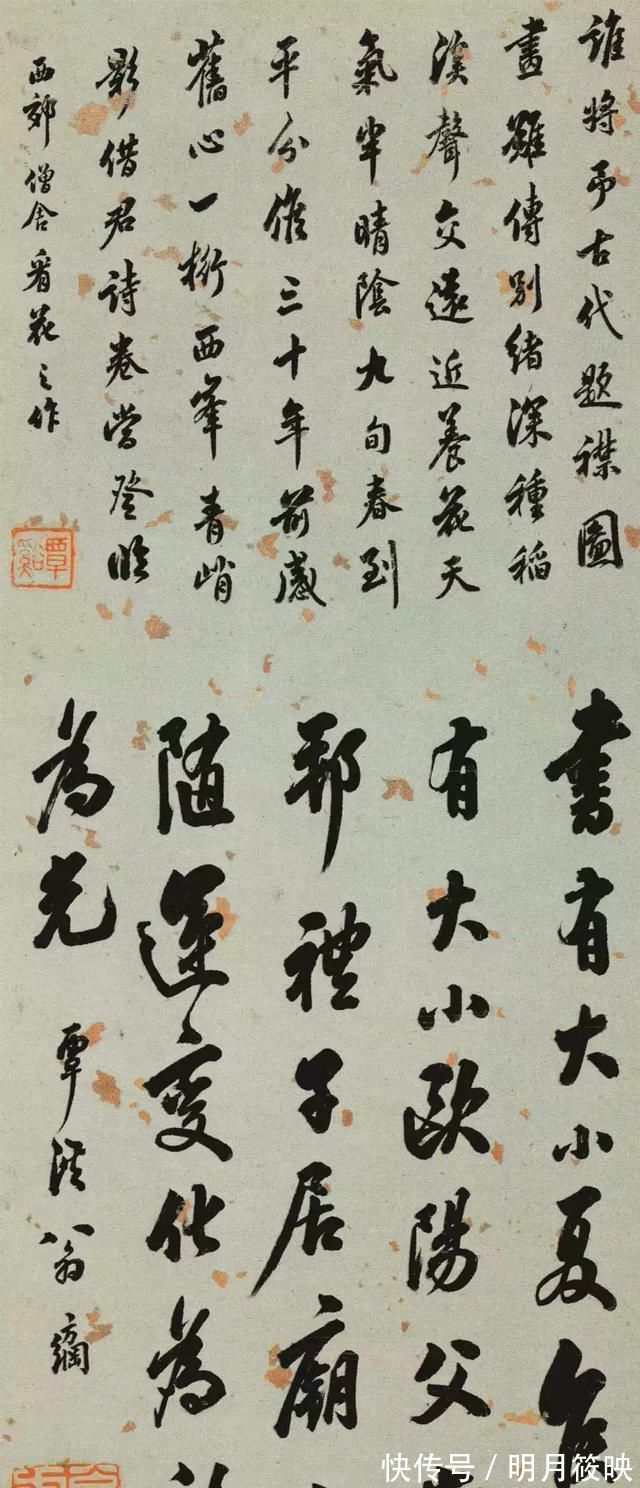 誰將予古代題襟圖
畫難傳別緒深種稻
溪聲交遠近養花天
氣半晴陰九旬春到
平分候三十年前感
舊心一桁西峯青峭
影借君詩卷當登臨
西郊僧舍看花之作
覃谿
書有大小夏
有大小歐陽父
邦禮子居廟
隨運變化為
為光
覃溪翁方綱
快传号／明月筱映